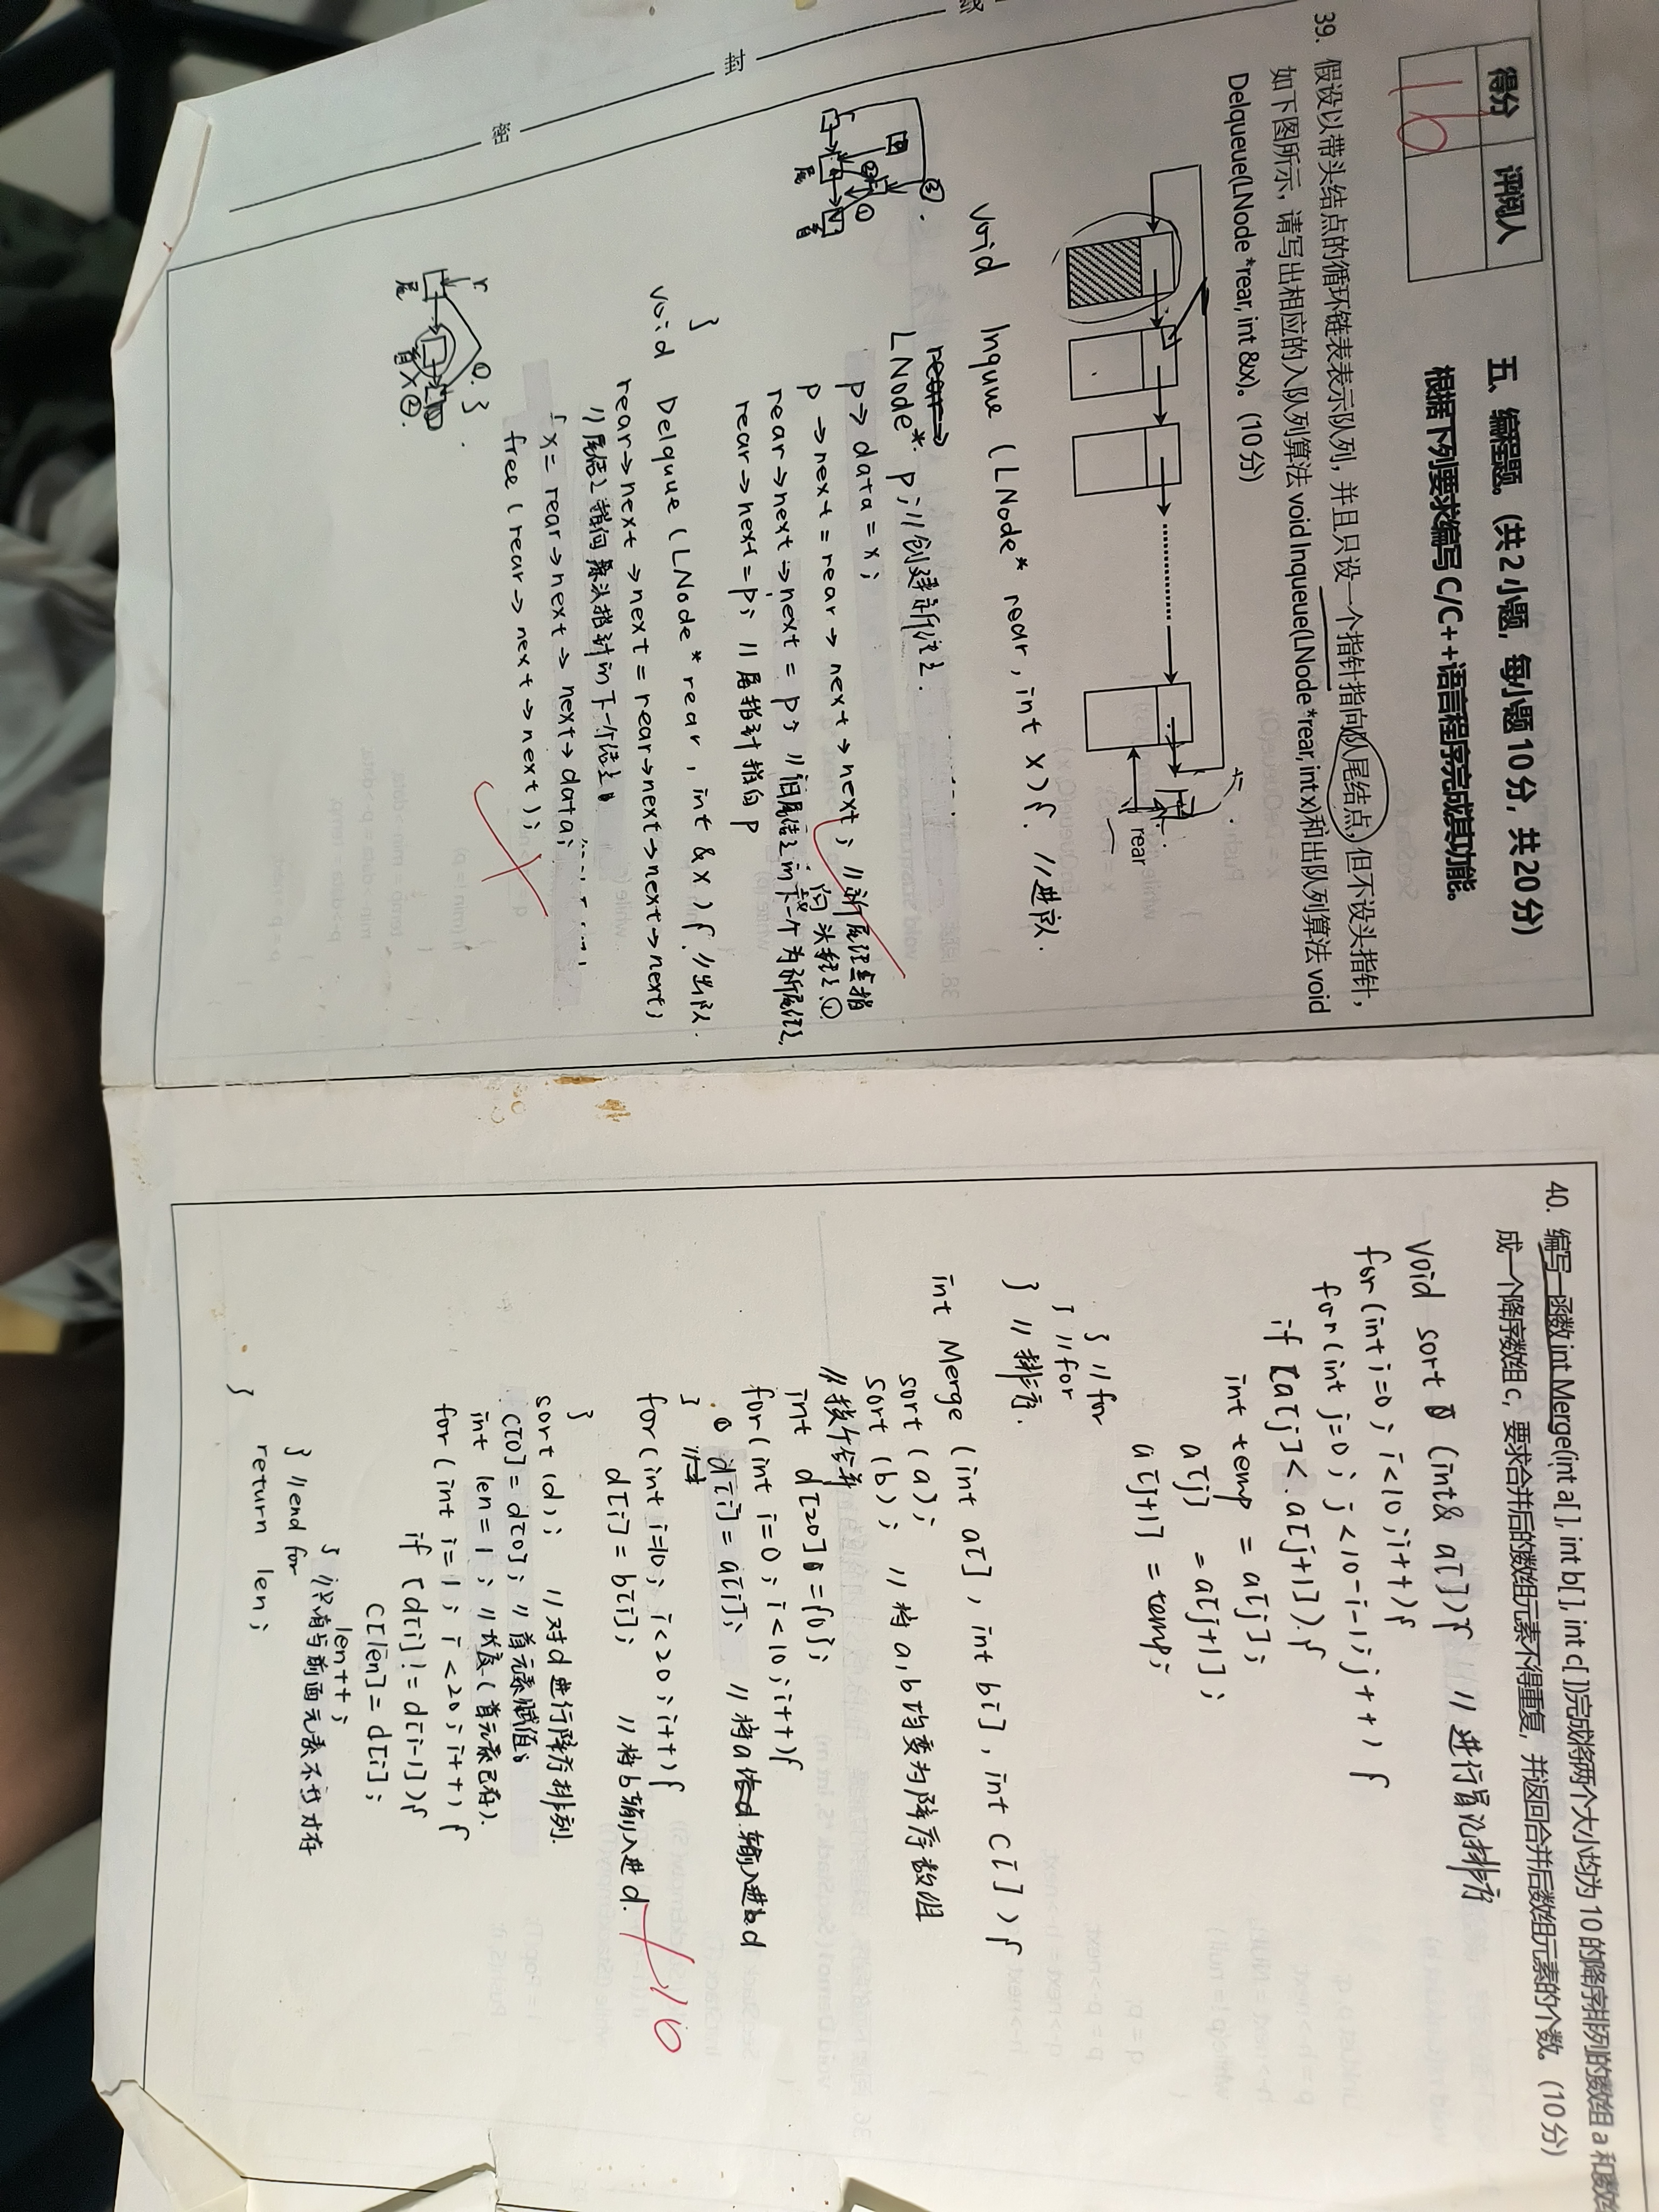 密
封
得分
评阅人
16
五、编程题。(共2小题,每小题10分,共20分)
根据下列要求编写C/C++语言程序完成其功能。
39. 假设以带头结点的循环链表表示队列,并且只设一个指针指向队尾结点,但不设头指针,
如下图所示,请写出相应的入队列算法 void Inqueue(LNode *rear, int x)和出队列算法 void
Delqueue(LNode *rear, int &x)。(10分)
rear
void Inqueue (LNode* rear, int x){ //进队.
LNode* p; //创建新结点.
p->data = x;
p->next = rear->next->next; //新尾结点指
向头结点①
rear->next->next = p; //旧尾结点的下一个为新尾结点,
rear->next = p; //尾指针指向p
}
void Delquue (LNode* rear, int &x){ //出队.
rear->next->next = rear->next->next->next;
//尾结点指向 头指针的下一个结点
{ x = rear->next->next->data;
free (rear->next->next);
}
①
②
③
尾
首
r
尾
首
①
②
40. 编写一函数 int Merge(int a[ ], int b[ ], int c[ ])完成将两个大小均为 10 的降序排列的数组 a 和数
成一个降序数组 c,要求合并后的数组元素不得重复,并返回合并后数组元素的个数。(10分)
void sort (int& a[]){ //进行冒泡排序
for(int i=0; i<10; i++){
for(int j=0; j<10-i-1; j++){
if [a[j]<a[j+1]){
int temp = a[j];
a[j] = a[j+1];
a[j+1] = temp;
} //for
} //for
} //排序.
int Merge (int a[], int b[], int c[]){
sort (a);
sort (b); //将a,b均变为降序数组
int d[20]={0};
for(int i=0; i<10; i++){
d[i] = a[i]; //将a 输入进d
}
for(int i=10; i<20; i++){
d[i] = b[i]; //将b输入进d.
}
sort (d); //对d进行降序排列.
c[0] = d[0]; //首元素赋值;
int len = 1; //长度(首元素已存).
for(int i=1; i<20; i++){
if [d[i] != d[i-1]){
c[len] = d[i];
len++;
} //只有与前面元素不等才存
} //end for
return len;
}
10